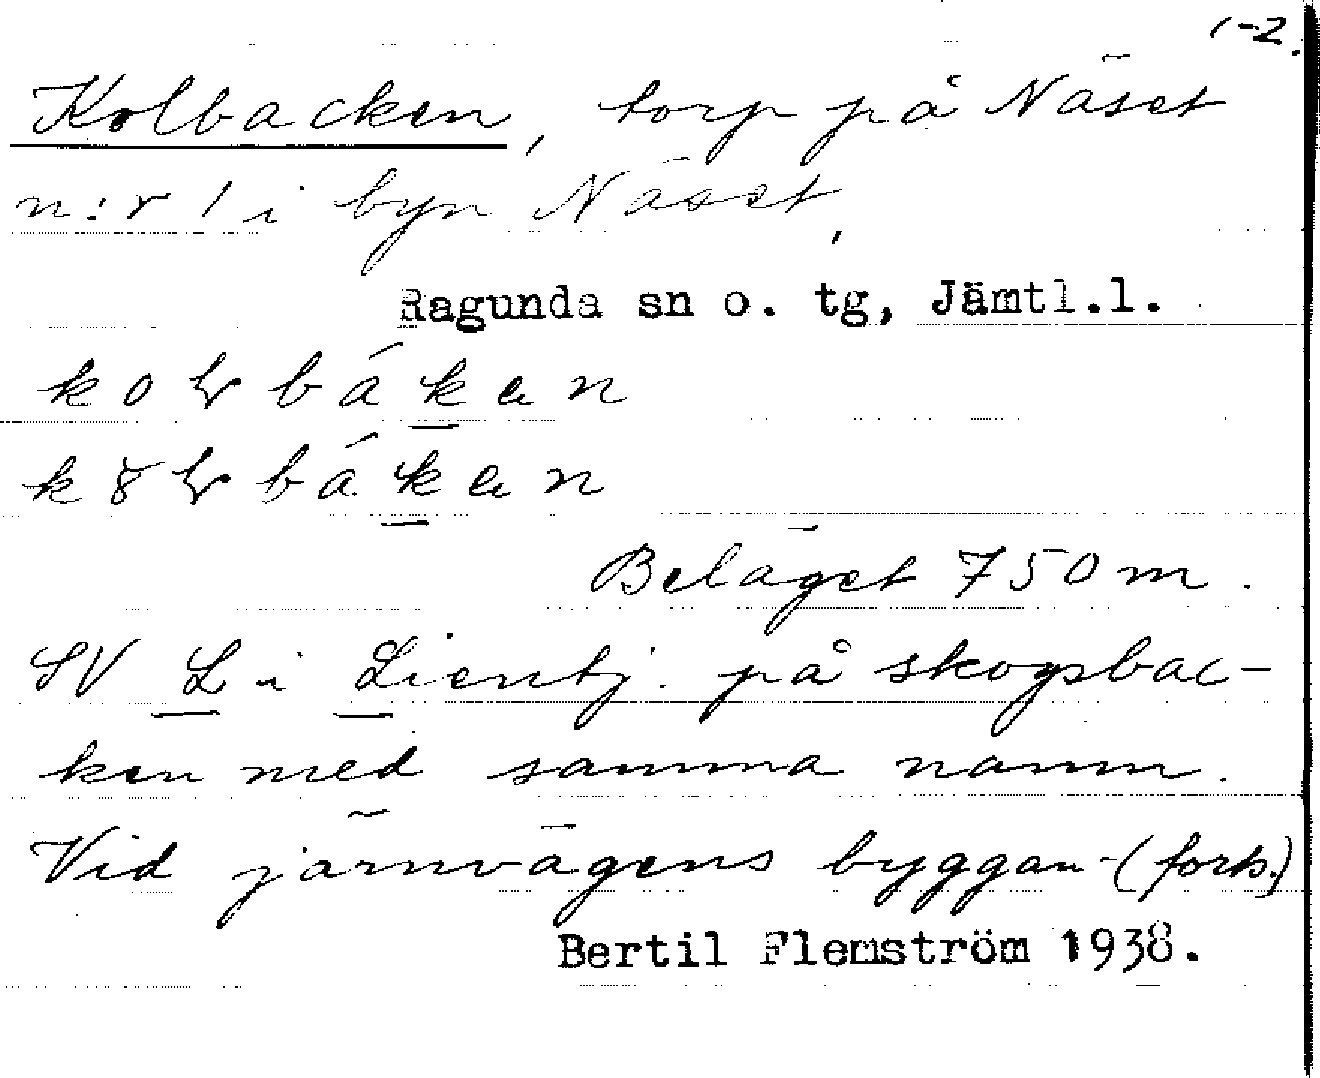 1-2.
Kolbacken, torp på Näset
n:r 1 i byn Näset,
Ragunda sn o. tg, Jämtl.l.
Beläget 750 m.
SV L i Lientj. på skogsbac-
ken med samma namn.
Vid järnvägens byggan- (forts.)
Bertil Flemström 1938.